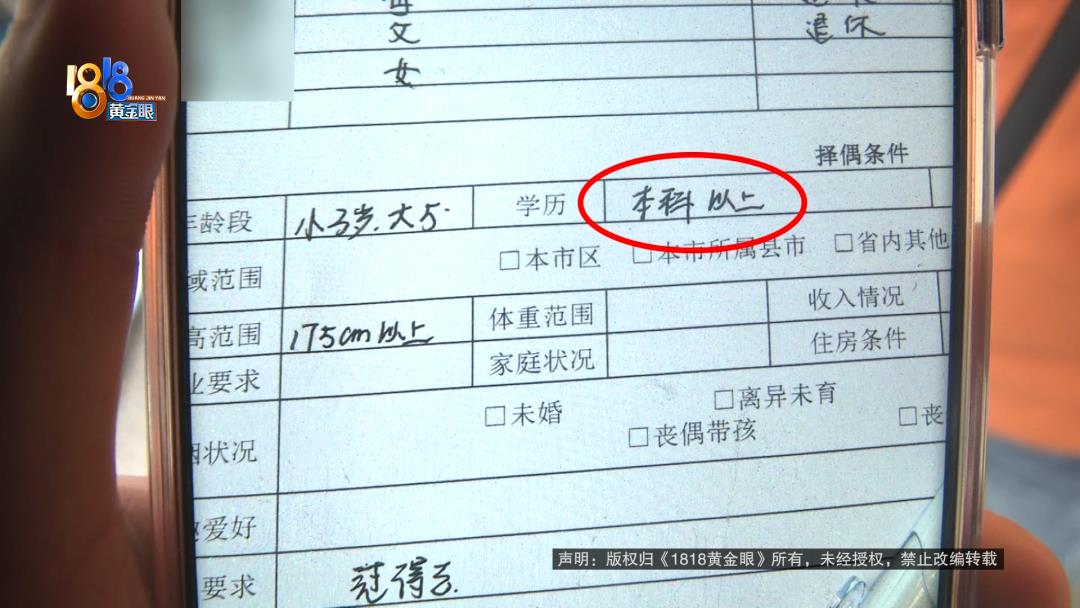 1818
HUANG JIN YAN
黄金眼
父
退休
女
择偶条件
年龄段 小3岁.大5. 学历 本科以上
域范围 □本市区 □本市所属县市 □省内其他
高范围 175cm以上 体重范围 收入情况
业要求 家庭状况 住房条件
姻状况 □未婚 □离异未育
□丧偶带孩 □丧
爱好
要求
声明：版权归《1818黄金眼》所有，未经授权，禁止改编转载